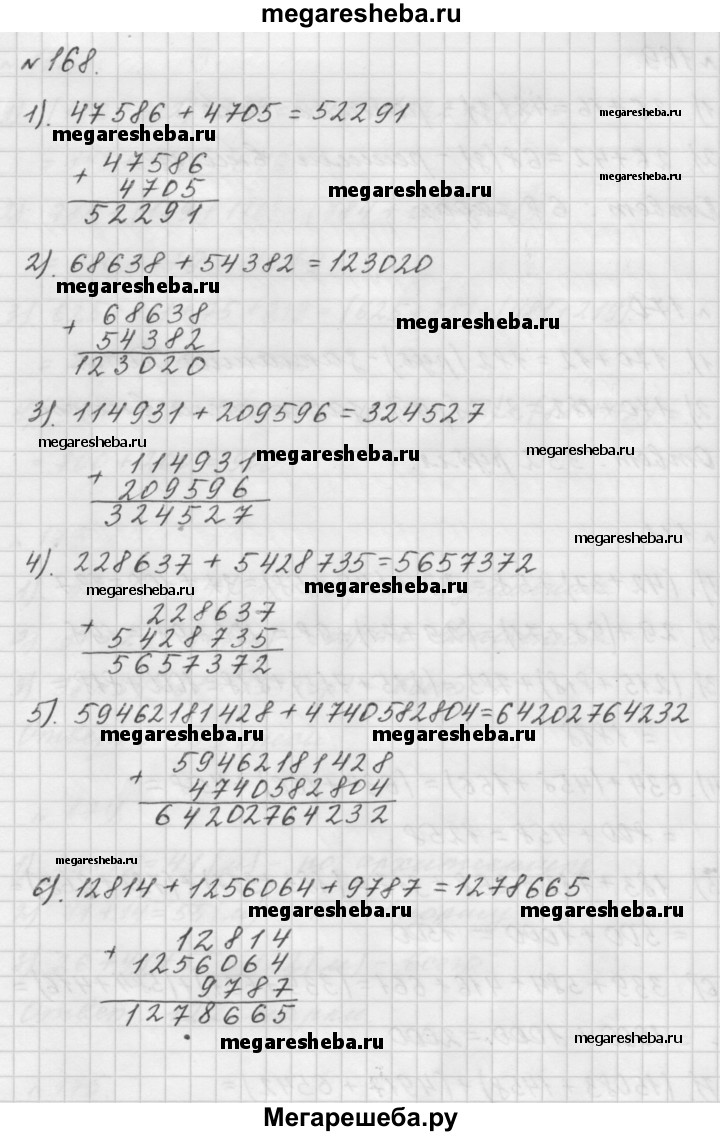 megaresheba.ru
№168.
1). 47586 + 4705 = 52291
megaresheba.ru
megaresheba.ru
+ 47586
4705
52291
megaresheba.ru
megaresheba.ru
2). 68638 + 54382 = 123020
megaresheba.ru
+ 68638
54382
123020
megaresheba.ru
3). 114931 + 209596 = 324527
megaresheba.ru
megaresheba.ru
megaresheba.ru
+ 114931
209596
324527
megaresheba.ru
4). 228637 + 5428735 = 5657372
megaresheba.ru
megaresheba.ru
+ 228637
5428735
5657372
5). 59462181428 + 4740582804 = 64202764232
megaresheba.ru
megaresheba.ru
+ 59462181428
4740582804
64202764232
megaresheba.ru
6). 12814 + 1256064 + 9787 = 1278665
megaresheba.ru
megaresheba.ru
+ 12814
1256064
9787
1278665
megaresheba.ru
megaresheba.ru
Мегарешеба.ру